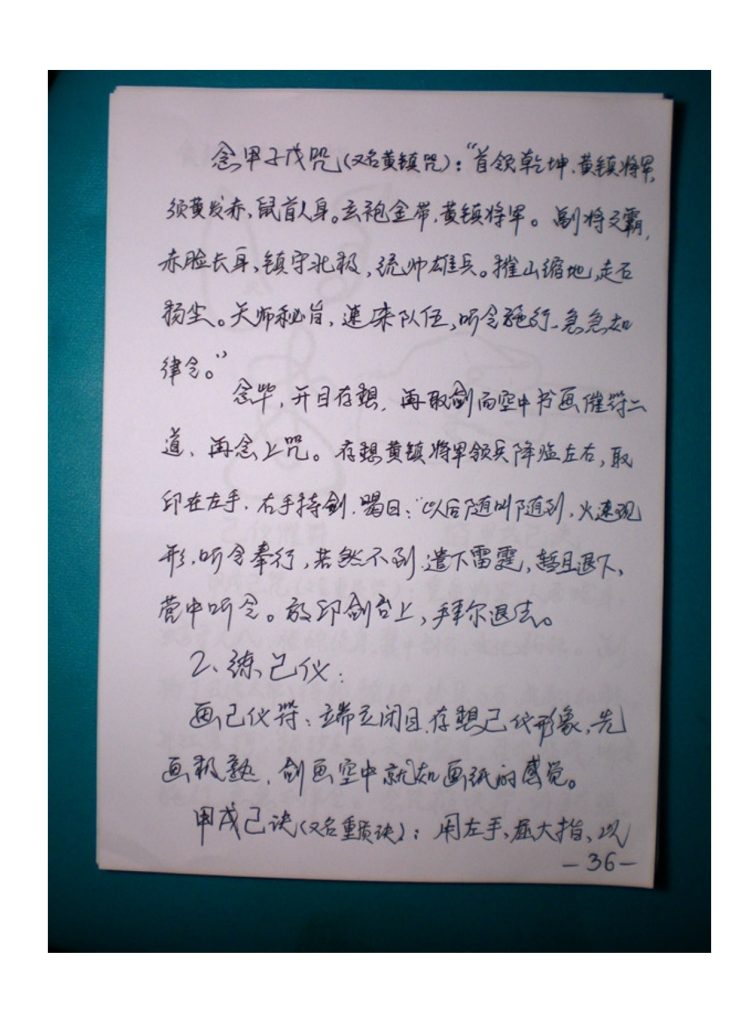 念甲子戊咒(又名黄镇咒):“首领乾坤,黄镇将军,
须黄发赤,鼠首人身。玄袍金带,黄镇将军。副将文霸,
赤脸长耳,镇守北极,统帅雄兵。摧山缩地,走石
扬尘。天师秘旨,速来队伍,听令施行,急急如
律令。”
念毕,开目存想,再取剑向空中书画催符二
道,再念上咒。存想黄镇将军领兵降临左右,取
印在左手,右手持剑,喝曰:“以后随叫随到,火速现
形,听令奉行,若然不到,遣下雷霆,暂且退下,
营中听令。放印剑台上,拜尔退去。
2、练己仪:
画己仪符、立端立闭目,存想己仪形象,先
画极熟,剑画空中就如画纸的感觉。
甲戌己诀(又名重质诀):用左手,屈大指,以
-36-